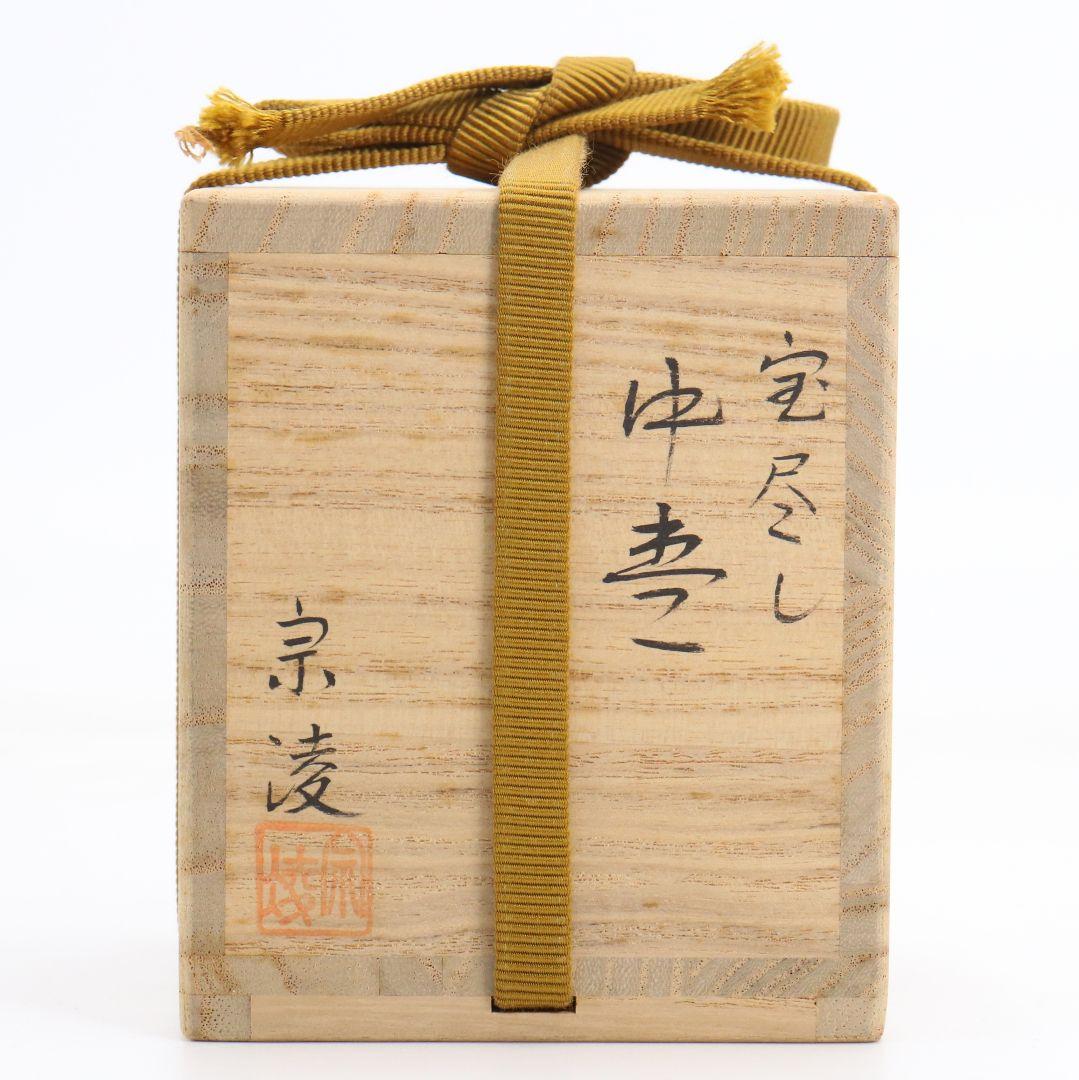 宝尽し
中棗
宗凌
宗凌